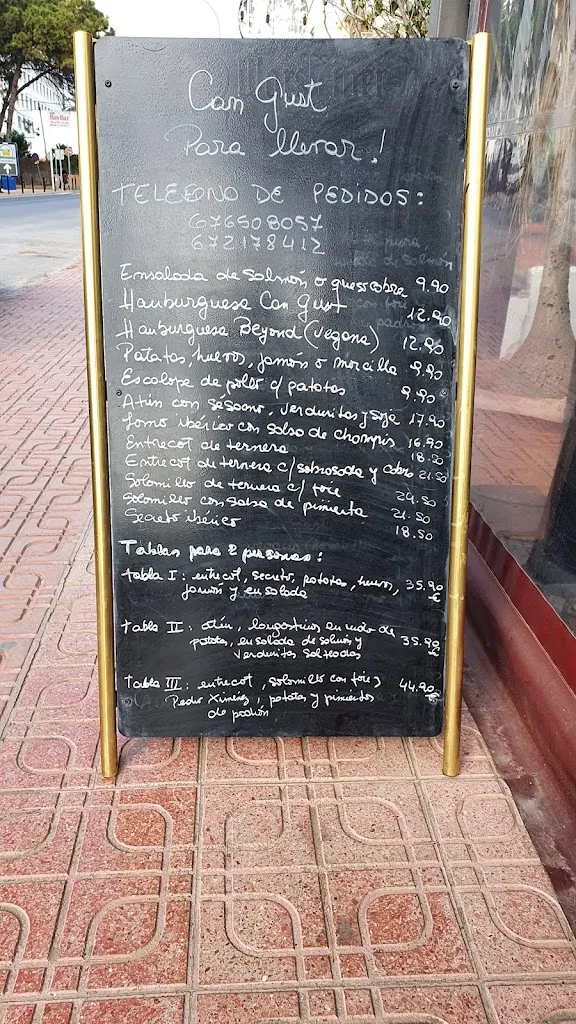 Can Gust
Para llevar!
TELEFONO DE PEDIDOS:
676508057
672178412
Ensalada de salmón o queso cabra 9.90
Hamburguesa Can Gust 12.90
Hamburguesa Beyond (vegana) 12.90
Patatas, huevos, jamón o morcilla 9.90
Escalope de pollo c/ patatas 9.90
Atún con sésamo, verduritas y soja 17.90
Lomo ibérico con salsa de champis 16.90
Entrecot de ternera 18.50
Entrecot de ternera c/ sobrasada y cabra 21.50
Solomillo de ternera c/ foie 24.50
Solomillo con salsa de pimienta 21.50
Secreto ibérico 18.50
Tablas para 2 personas:
Tabla I: entrecot, secreto, patatas, huevos, 35.90 €
jamón y ensalada
Tabla II: atún, langostinos en nido de
patata, ensalada de salmón y 35.90 €
verduritas salteadas
Tabla III: entrecot, solomillo con foie y 44.90 €
Pedro Ximénez, patatas y pimientos
de padrón